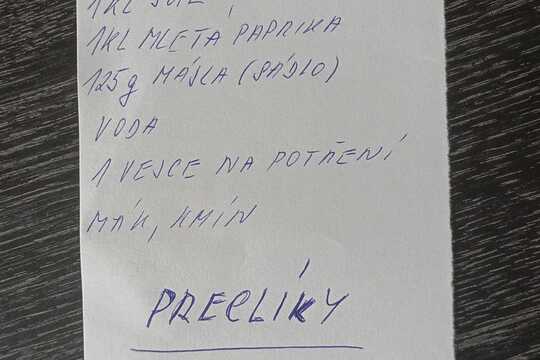 1KL SŮL,
1KL MLETÁ PAPRIKA
125g MÁSLA (SÁDLO)
VODA
1 VEJCE NA POTŘENÍ
MÁK, KMÍN
PRECLÍKY